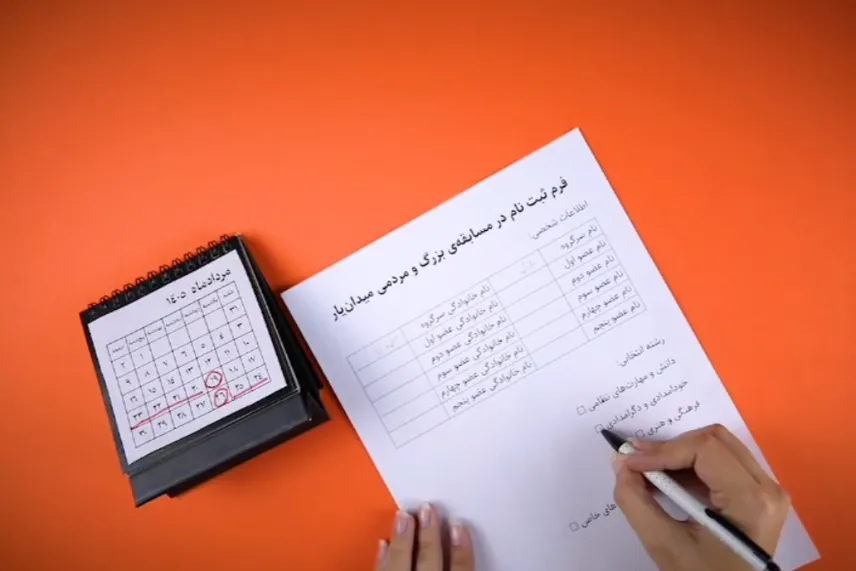 مردادماه ۱۴۰۵
۳۱ ۱ ۲
۳ ۴ ۵ ۶ ۷ ۸ ۹
۱۰ ۱۱ ۱۲ ۱۳ ۱۴ ۱۵ ۱۶
۱۷ ۱۸ ۱۹ ۲۰ ۲۱ ۲۲ ۲۳
۲۴ ۲۵ ۲۶ ۲۷ ۲۸ ۲۹ ۳۰
فرم ثبت نام در مسابقه‌ی بزرگ و مردمی میدان‌یار
اطلاعات شخصی:
نام سرگروه نام خانوادگی سرگروه
نام عضو اول نام خانوادگی عضو اول
نام عضو دوم نام خانوادگی عضو دوم
نام عضو سوم نام خانوادگی عضو سوم
نام عضو چهارم نام خانوادگی عضو چهارم
نام عضو پنجم نام خانوادگی عضو پنجم
رشته انتخابی:
دانش و مهارت‌های نظامی
خودامدادی و دگرامدادی
فرهنگی و هنری
های خاص